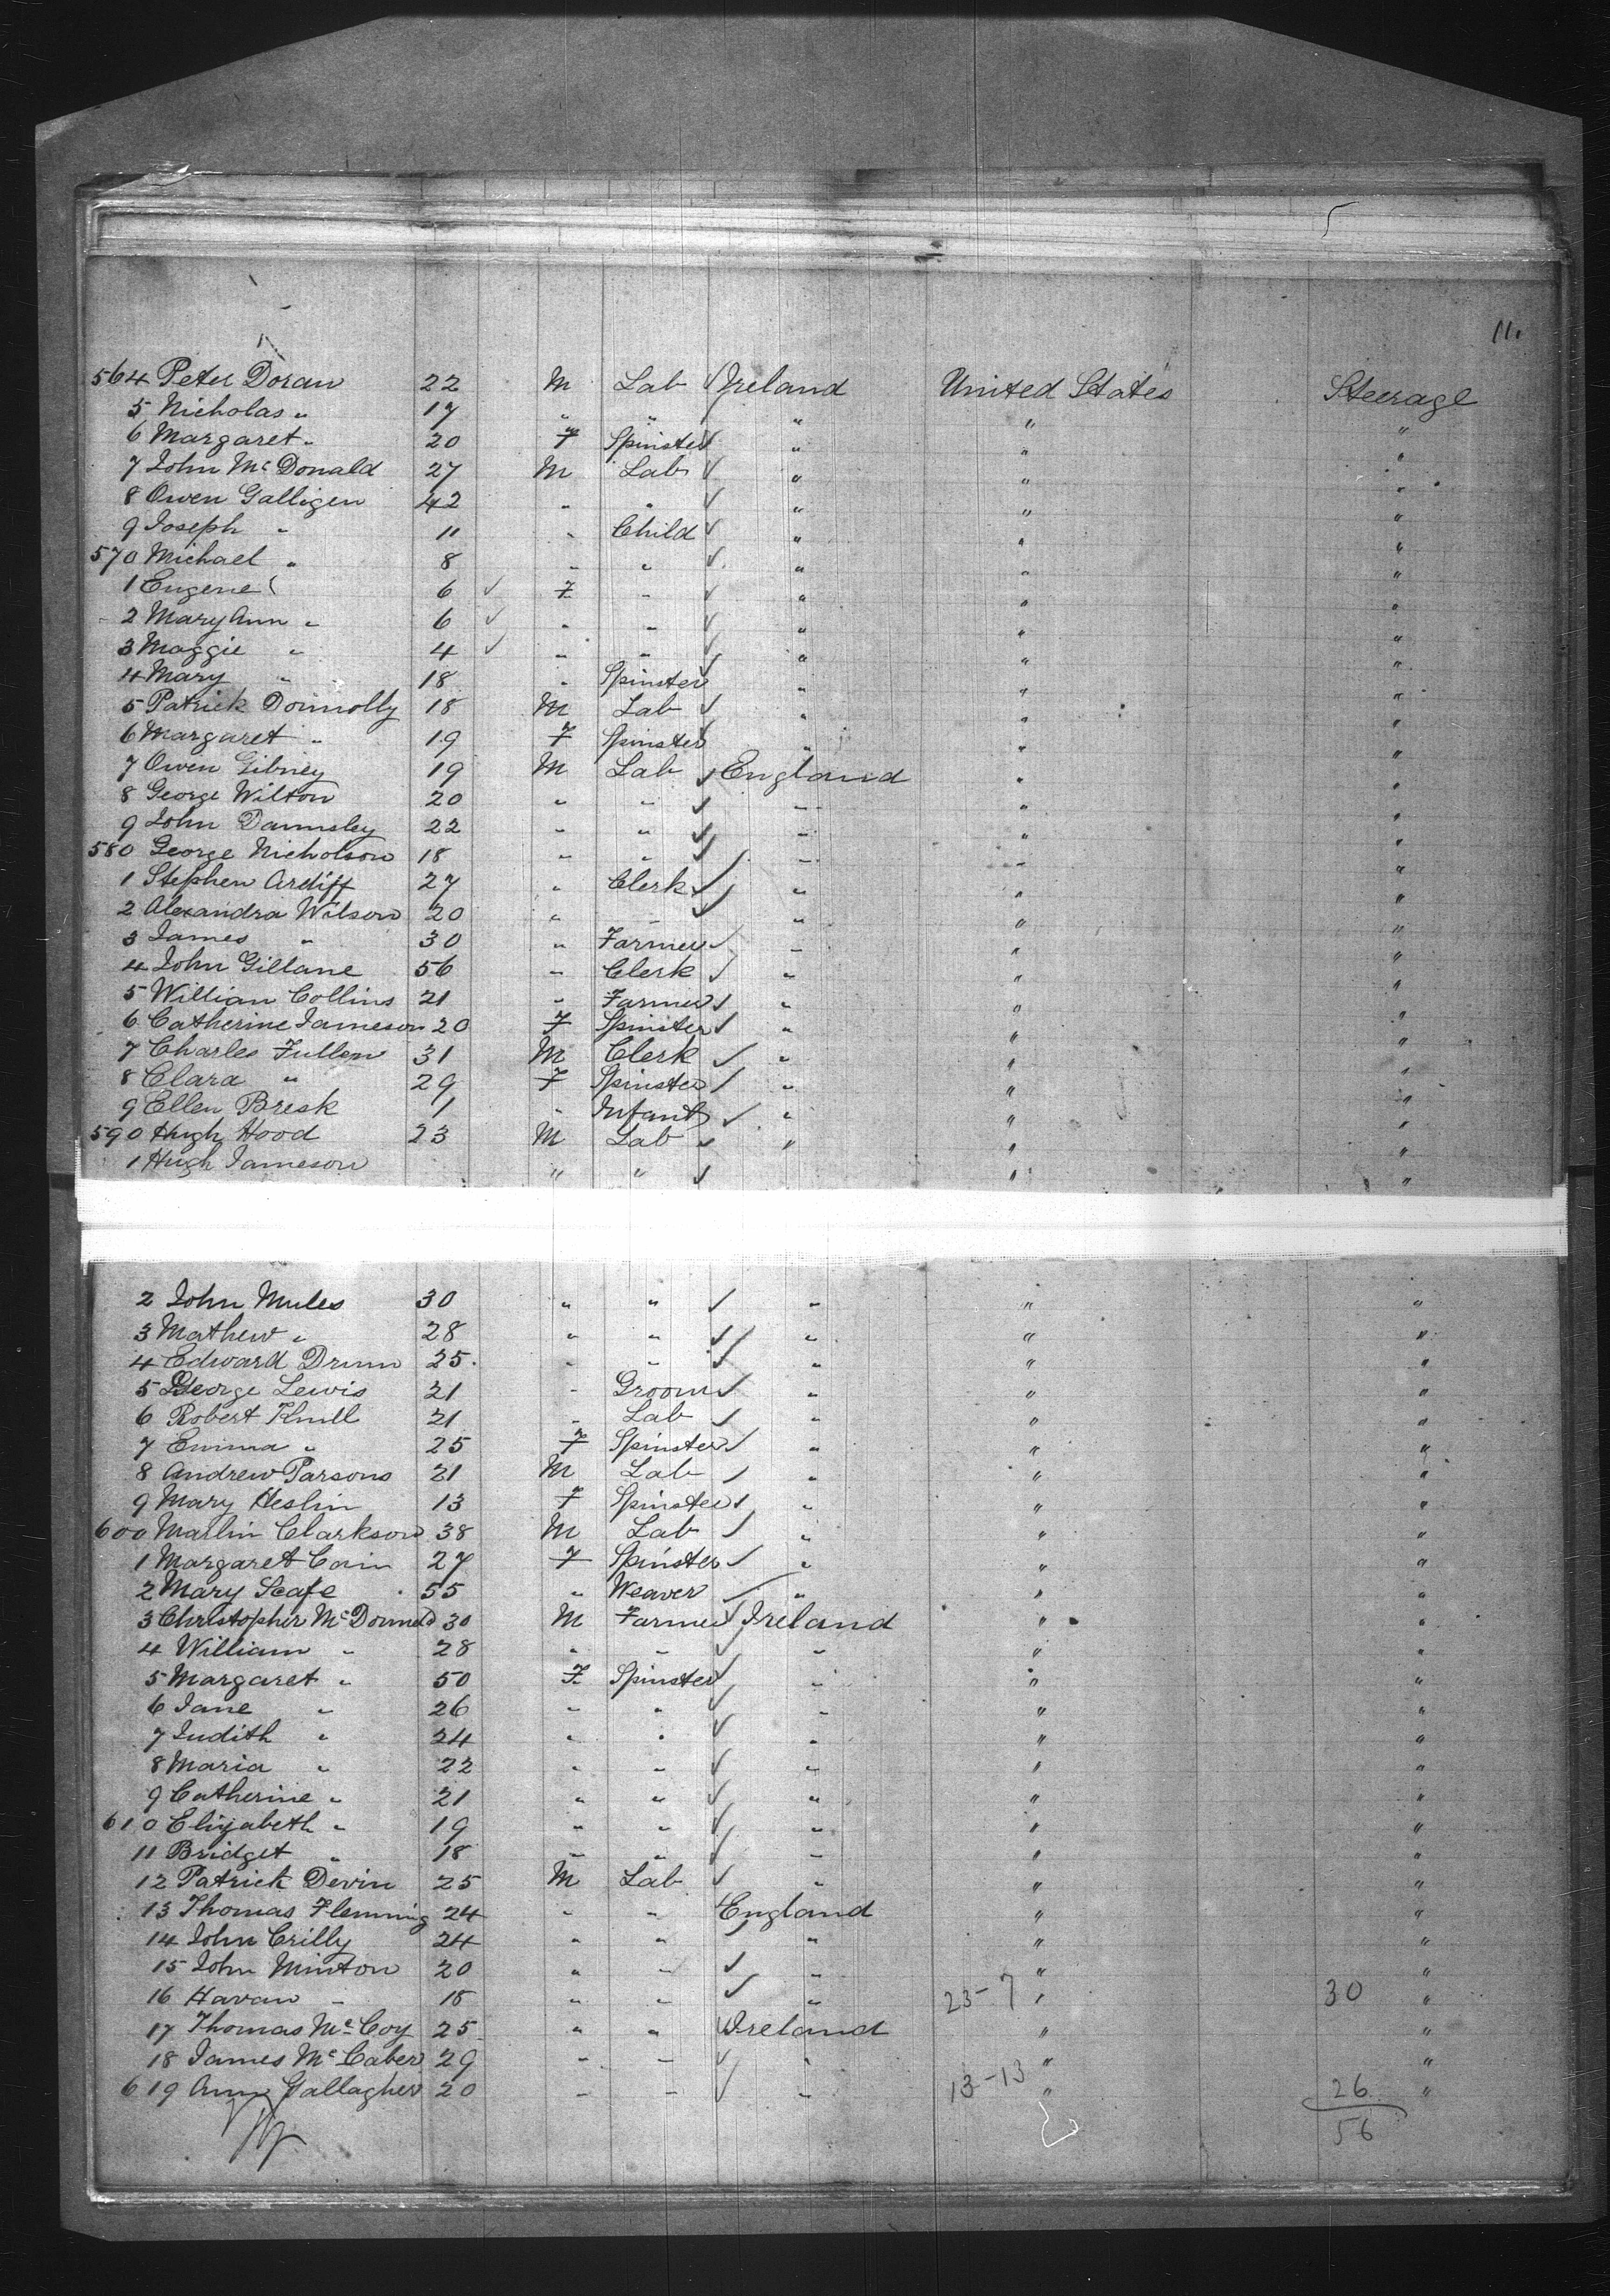 5
11.
564 Peter Doran 22 M Lab Ireland United States Steerage
5 Nicholas " 17 " " " " "
6 Margaret " 20 F Spinster " " "
7 John Mc Donald 27 M Lab " " "
8 Owen Galligen 42 " " " " "
9 Joseph " 11 " Child " " "
570 Michael " 8 " " " " "
1 Eugene 6 F " " " "
2 Mary Ann " 6 " " " " "
3 Maggie " 4 " " " " "
4 Mary " 18 " Spinster " " "
5 Patrick Donnolly 18 M Lab " " "
6 Margaret " 19 F Spinster " " "
7 Owen Gibney 19 M Lab England " "
8 George Wilton 20 " " " " "
9 John Dannsley 22 " " " " "
580 George Nicholson 18 " " " " "
1 Stephen Ardiff 27 " Clerk " " "
2 Alexandra Wilson 20 " " " " "
3 James " 30 " Farmer " " "
4 John Gillane 56 " Clerk " " "
5 William Collins 21 " Farmer " " "
6 Catherine Jameson 20 F Spinster " " "
7 Charles Fullen 31 M Clerk " " "
8 Clara " 29 F Spinster " " "
9 Ellen Bresk 1 " Infant " " "
590 Hugh Hood 23 M Lab " " "
1 Hugh Jameson " " " "
2 John Mules 30 " " " " "
3 Mathew " 28 " " " " "
4 Edward Drum 25 " " " " "
5 George Lewis 21 " Groom " " "
6 Robert 21 " Lab " " "
7 Emma " 25 F Spinster " " "
8 Andrew Parsons 21 M Lab " " "
9 Mary Heslin 13 F Spinster " " "
600 Martin Clarkson 38 M Lab " " "
1 Margaret Cain 27 F Spinster " " "
2 Mary Scafe 55 " Weaver " " "
3 Christopher Mc Donnell 30 M Farmer Ireland " "
4 William " 28 " " " " "
5 Margaret " 50 F Spinster " " "
6 Jane " 26 " " " " "
7 Judith " 24 " " " " "
8 Maria " 22 " " " " "
9 Catherine " 21 " " " " "
610 Elizabeth " 19 " " " " "
11 Bridget " 18 " " " " "
12 Patrick Devin 25 M Lab " " "
13 Thomas Flemming 24 " " England " "
14 John Crilly 24 " " " " "
15 John Minton 20 " " " " "
16 Havan " 18 " " " 23-7 " 30 "
17 Thomas Mc Coy 25 " " Ireland " "
18 James Mc Caber 29 " " " " "
619 Ann Gallagher 20 " " " 13-13 " 26 "
56